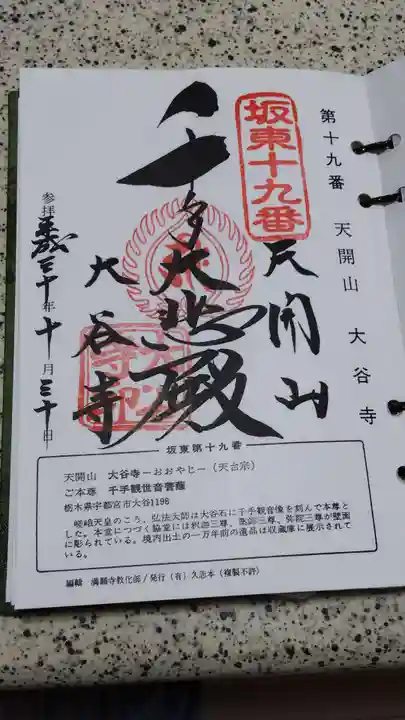 第十九番　天開山　大谷寺
坂東十九番
天開山
千手大悲殿
大谷寺
参拝 平成三十年十月三十日
坂東第十九番
天開山　大谷寺－おおやじ－（天台宗）
ご本尊　千手観世音菩薩
栃木県宇都宮市大谷1198
嵯峨天皇のころ、弘法大師は大谷石に千手観音像を刻んで本尊と
した。本堂につづく脇堂には釈迦三尊、薬師三尊、弥陀三尊が壁面
に彫られている。境内出土の一万年前の遺品は収蔵庫に展示されて
いる。
編輯　満願寺教化部／発行（有）久志本（複製不許）